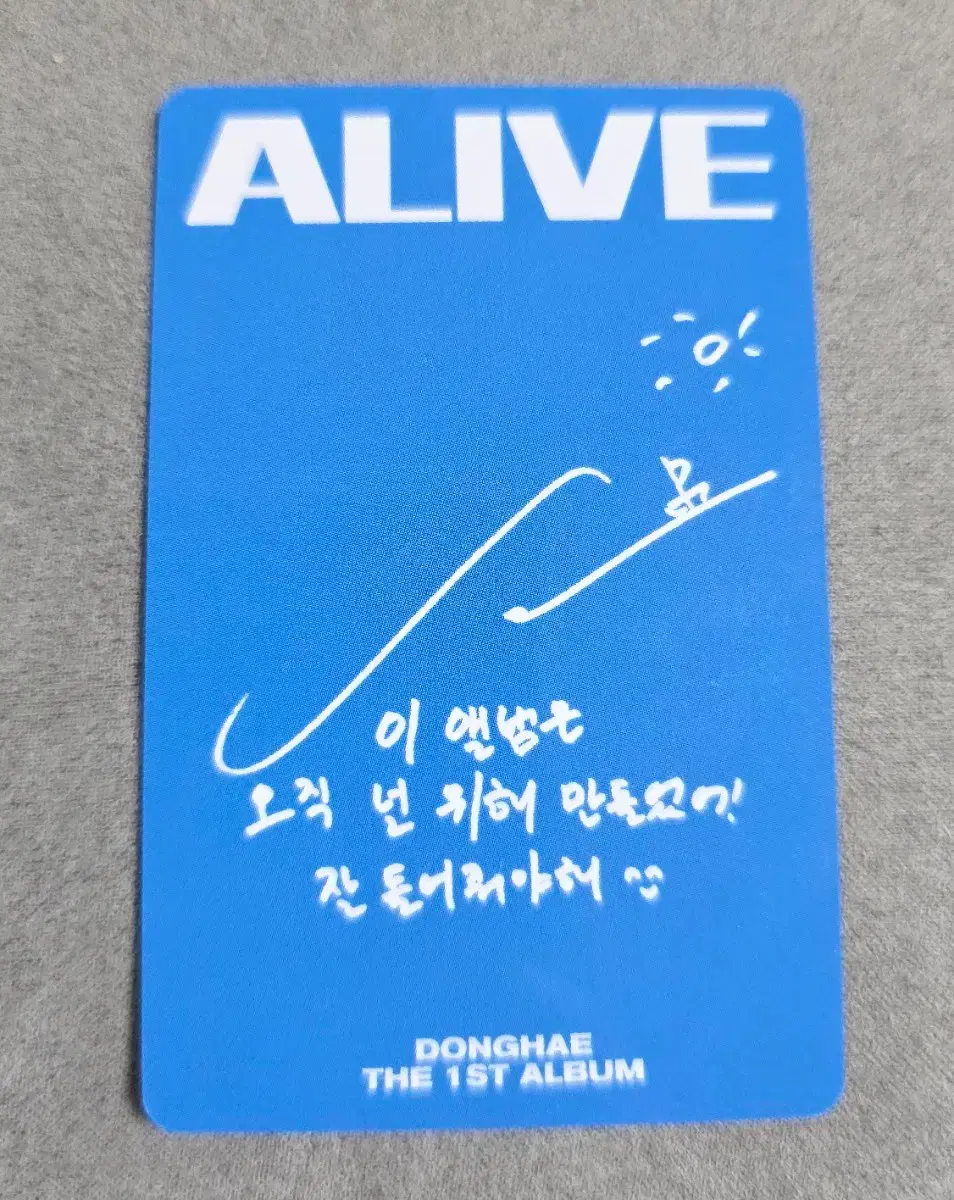 ALIVE
이 앨범은
오직 널 위해 만들었어!
잘 들어줘야해 ^^
DONGHAE
THE 1ST ALBUM